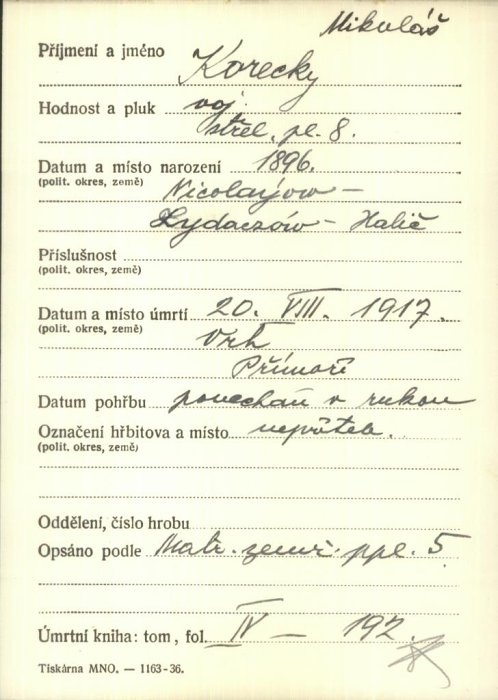 Mikuláš
Příjmení a jméno Korecky
Hodnost a pluk voj.
střel. pl. 8.
Datum a místo narození 1896.
(polit. okres, země) Nicolayow –
Żydaczów – Halič
Příslušnost
(polit. okres, země)
Datum a místo úmrtí 20. VIII. 1917.
(polit. okres, země) Vrh
Přímoří
Datum pohřbu ponechán v rukou
Označení hřbitova a místo nepřátel.
(polit. okres, země)
Oddělení, číslo hrobu
Opsáno podle Matr. zemř. ppl. 5
Úmrtní kniha: tom, fol. IV – 192.
Tiskárna MNO. — 1163-36.